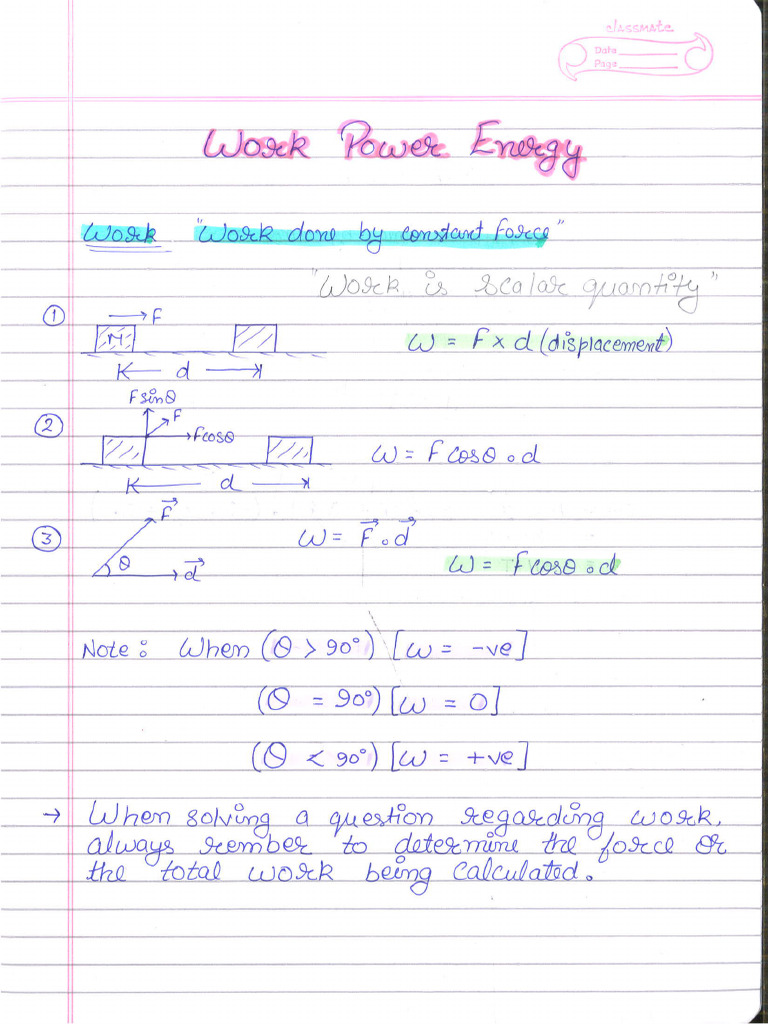 classmate
Date
Page
Work Power Energy
Work "Work done by constant force"
"Work is scalar quantity"
① F
M
W = F x d (displacement)
d
F sinθ
② F
F cosθ
W = F cosθ . d
d
③ F⃗
θ
d⃗
W = F⃗ . d⃗
W = F cosθ . d
Note : When (θ > 90°) [W = -ve]
(θ = 90°) [W = 0]
(θ < 90°) [W = +ve]
→ When solving a question regarding work,
always rember to determine the force or
the total work being calculated.